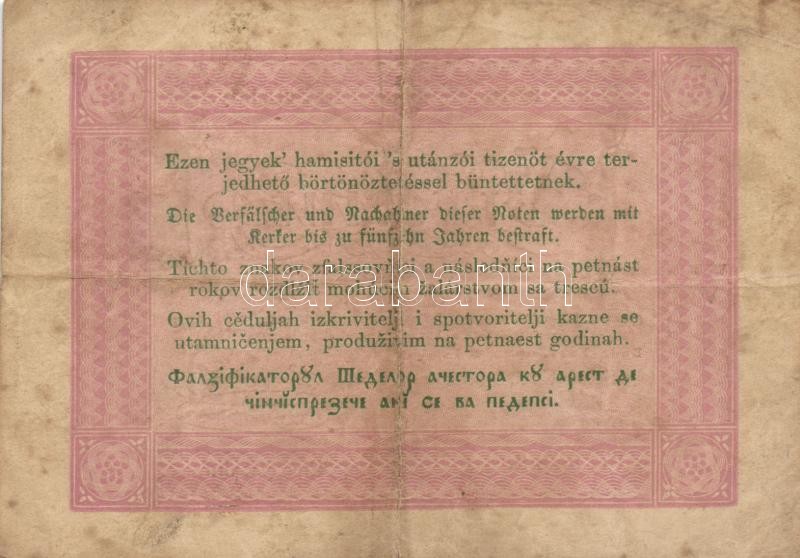 Ezen jegyek' hamisitói 's utánzói tizenöt évre ter-
jedhető börtönöztetéssel büntettetnek.
Die Verfälscher und Nachahmer dieser Noten werden mit
Kerker bis zu fünfzehn Jahren bestraft.
Tichto znakov zfalssovňíci a následňíci na petnást
rokov rozďížiť mohúcím žalárstvom sa trescú.
Ovih cěduljah izkrivitelji i spotvoritelji kazne se
utamničenjem, produživim na petnaest godinah.
Фалзіфікаторꙋл Шеделор ачестора кꙋ арест де
чінчіспрезече ані се ва педепсі.
darabanth